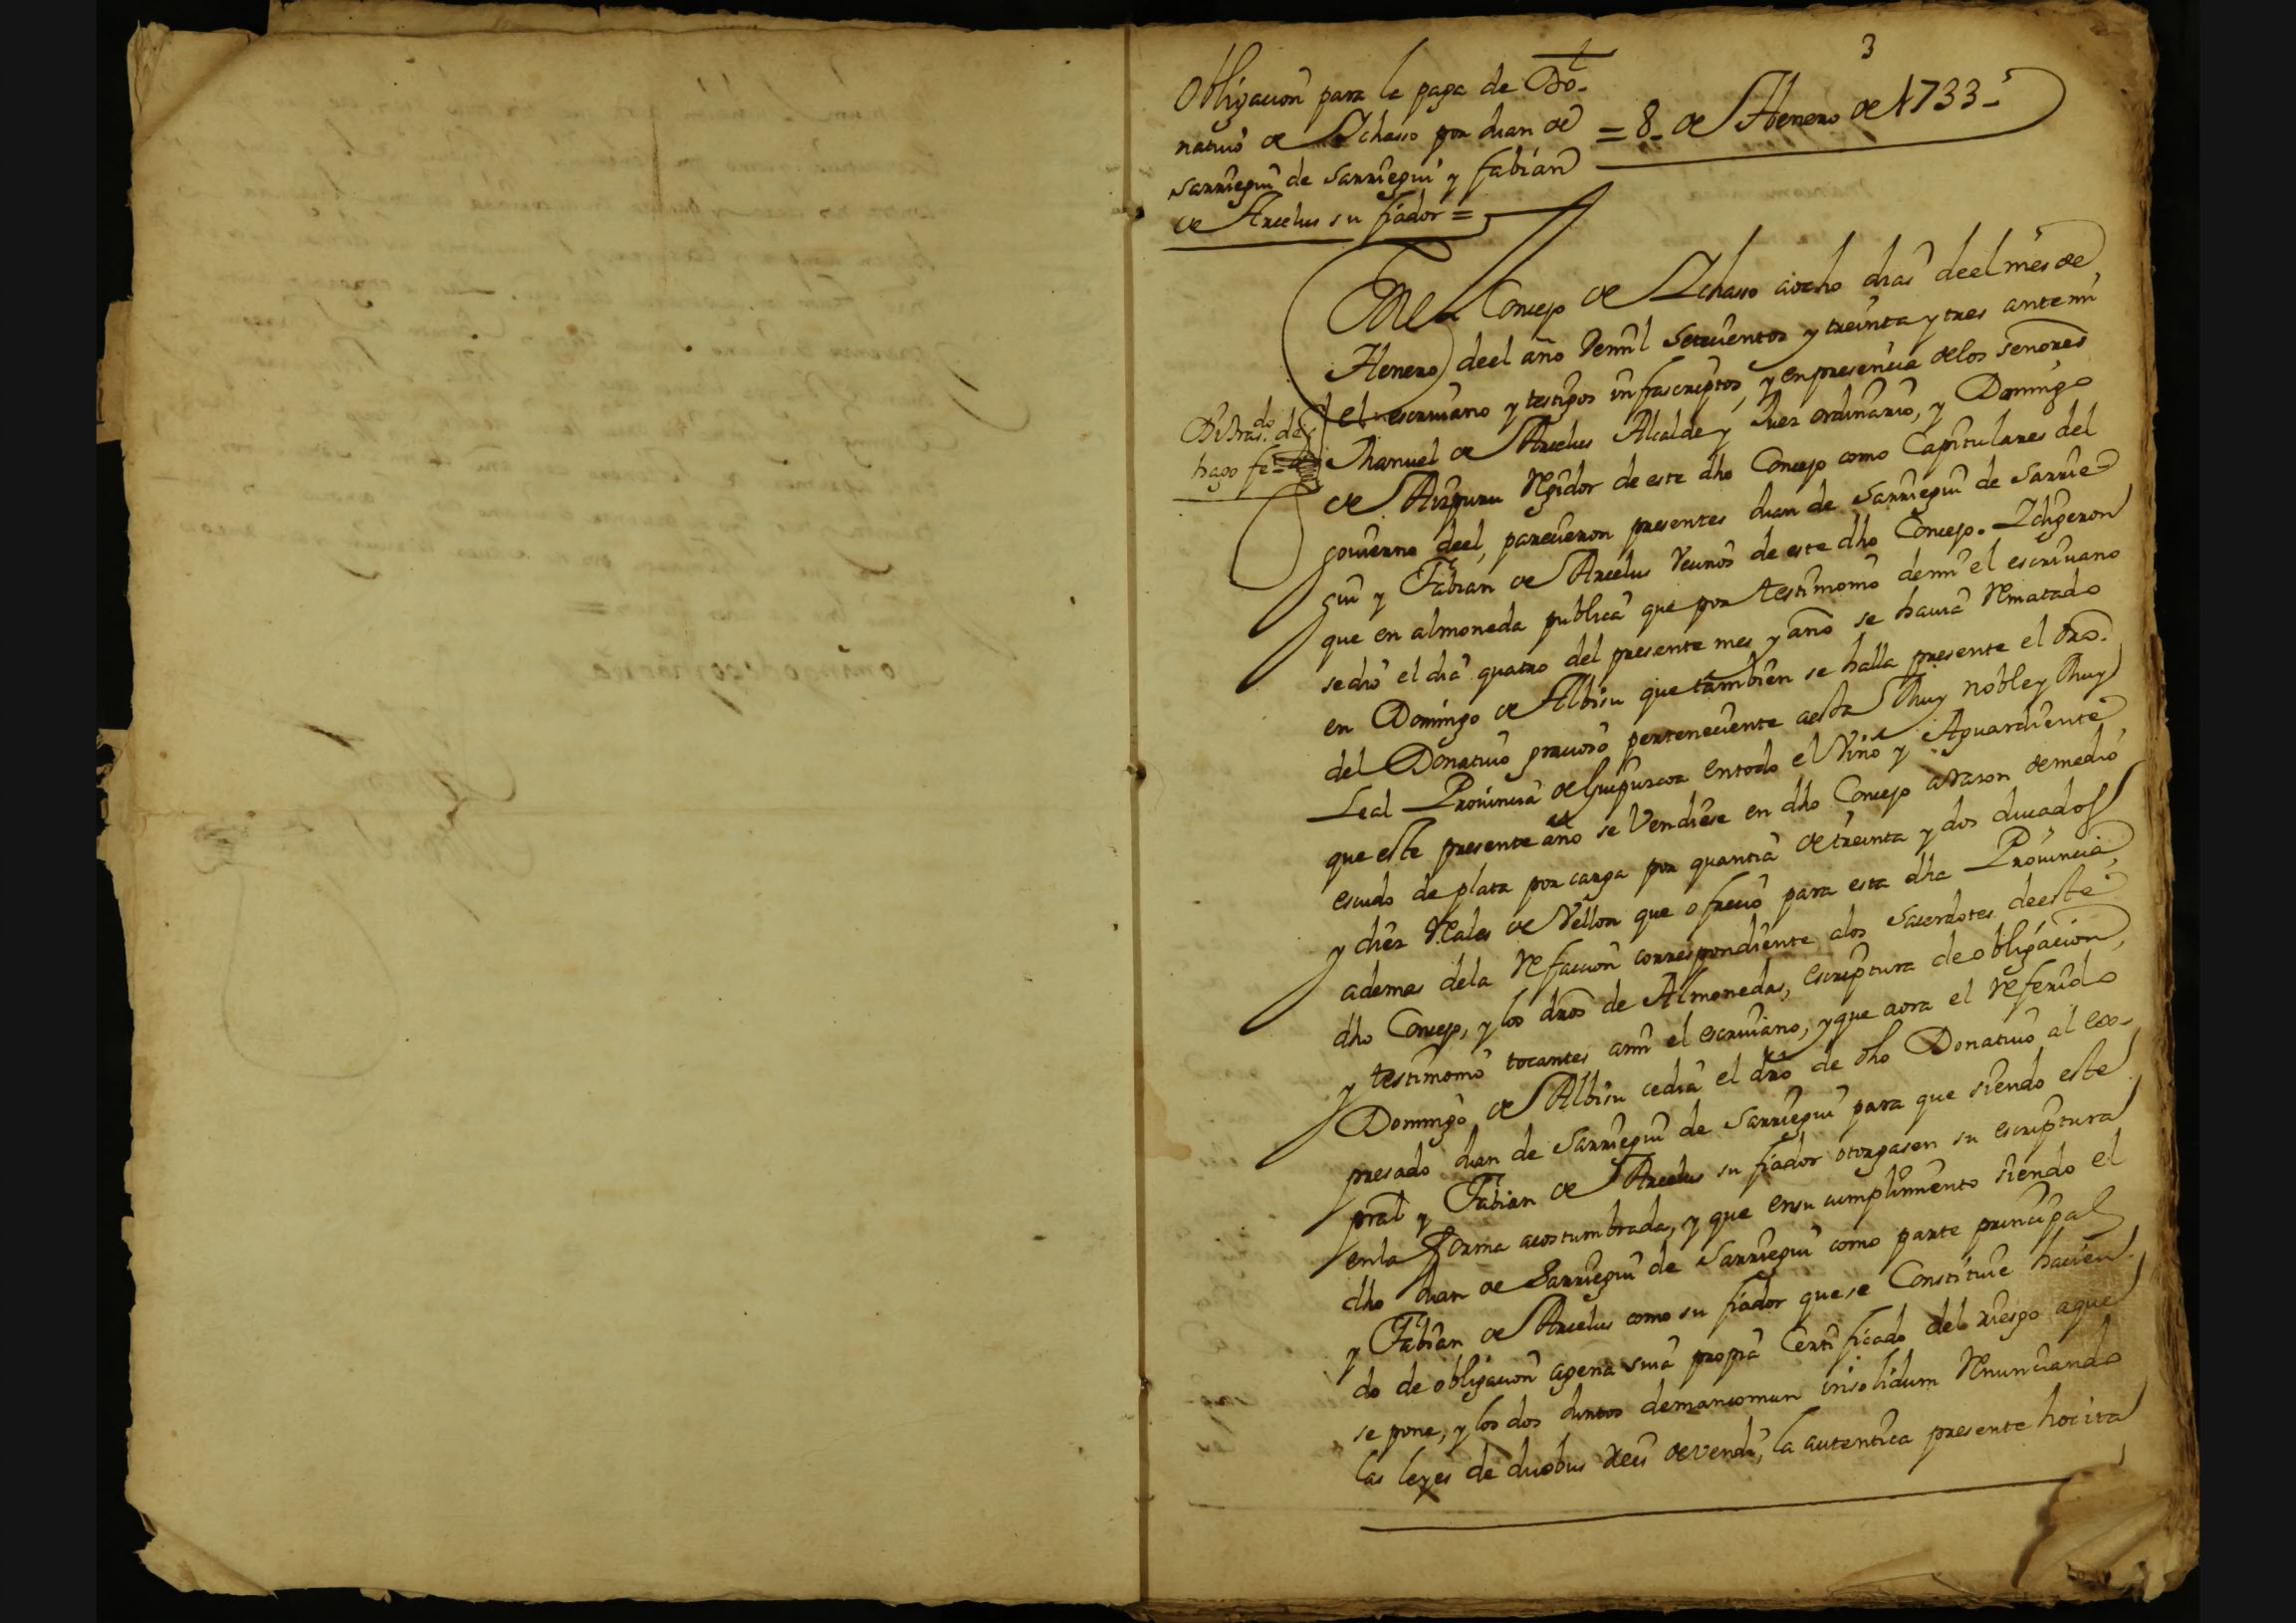 3
Obligacion para la paga de Do-
natiuo de Ichasso por Juan de
Sarriegui de Sarriegui y fabian
de Arcelus su fiador =
= 8_ de Henero de 1733_
En el Concejo de Ichasso a ocho dias de el mes de
Henero de el año de mil Setecientos y treinta y tres ante mi
el escriuano y testigos infrascriptos, y en presencia de los señores
Manuel de Arcelus Alcalde y Juez ordinario, y Domingo
de Regidor de este dho Concejo como Capitulares del
gouierno de el, parecieron presentes Juan de Sarriegui de Sarrie-
gui y Fabian de Arcelus Vecinos de este dho Concejo. I dijeron
que en almoneda publica que por testimonio de mi el escriuano
se dio el dia quatro del presente mes y año se hauia Rematado
en Domingo de Albisu que tambien se halla presente el dro.
del Donatiuo gracioso perteneciente a esta Muy noble y Muy
Leal Prouincia de Guipuzcoa en todo el Vino y Aguardiente
que este presente año se Vendiese en dho Concejo a Rason de medio
escudo de plata por carga por quantia de treinta y dos ducados
y diez Reales de Vellon que ofrecio para esta dha Prouincia,
ademas de la Refaccion correspondiente a los Sacerdotes de este
dho Concejo, y los dros de Almonedas, escriptura de obligacion,
y testimonio tocantes a mi el escriuano, y que aora el Referido
Domingo de Albisu cedia el dro de dho Donatiuo al ex-
presado Juan de Sarriegui de Sarriegui para que siendo este
pral y Fabian de Arcelus su fiador otorgasen su escriptura
en la forma acostumbrada, y que en su cumplimiento siendo el
dho Juan de Sarriegui de Sarriegui como parte principal
y Fabian de Arcelus como su fiador que se Constituie hacien-
do de obligacion agena suia propia Certificado del riesgo a que
se pone, y los dos juntos de mancomun insolidum Renunciando
las leyes de duobus Reis devendi, la autentica presente hocita
hago fe